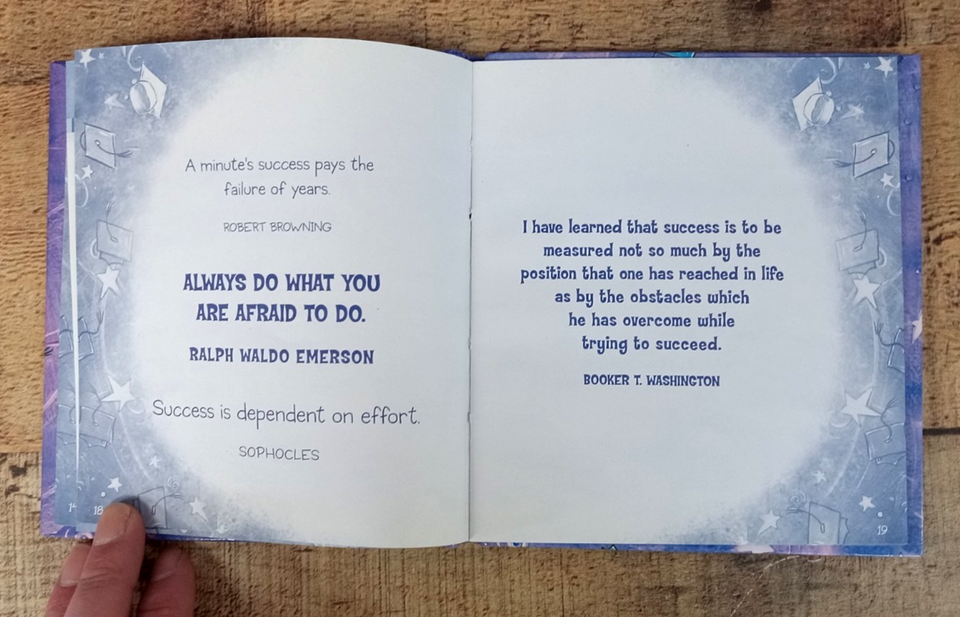 A minute's success pays the
failure of years.
ROBERT BROWNING
ALWAYS DO WHAT YOU
ARE AFRAID TO DO.
RALPH WALDO EMERSON
Success is dependent on effort.
SOPHOCLES
18
I have learned that success is to be
measured not so much by the
position that one has reached in life
as by the obstacles which
he has overcome while
trying to succeed.
BOOKER T. WASHINGTON
19